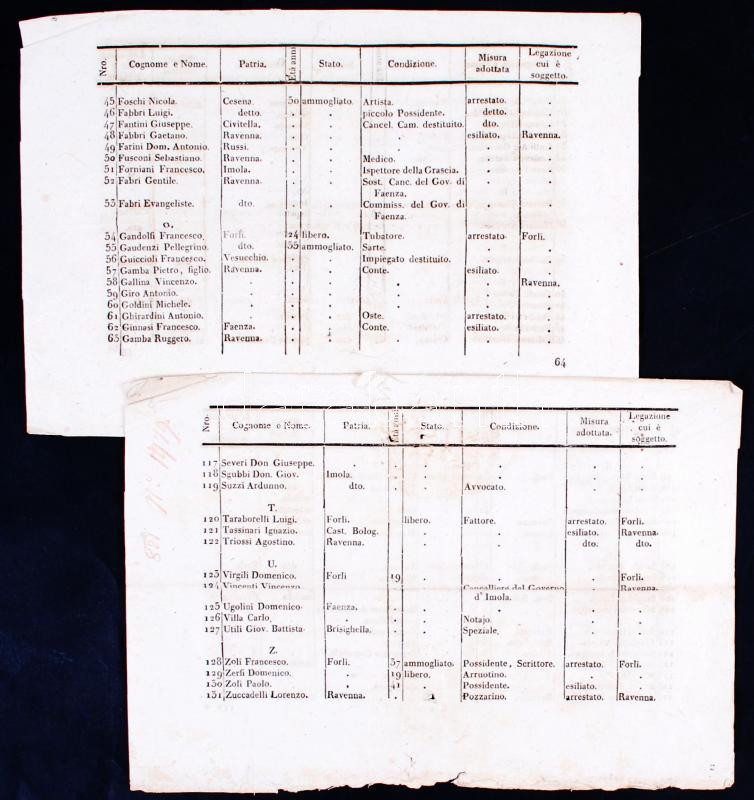 Nro. Cognome e Nome. Patria. Età anni Stato. Condizione. Misura adottata Legazione cui è soggetto.
45 Foschi Nicola. Cesena. 50 ammogliato. Artista. arrestato. .
46 Fabbri Luigi. detto. . . piccolo Possidente. detto. .
47 Fantini Giuseppe. Civitella. . . Cancel. Cam. destituito. dto. .
48 Fabbri Gaetano. Ravenna. . . . esiliato. Ravenna.
49 Farini Dom. Antonio. Russi. . . . . .
50 Fusconi Sebastiano. Ravenna. . . Medico. . .
51 Forniani Francesco. Imola. . . Ispettore della Grascia. . .
52 Fabri Gentile. Ravenna. . . Sost. Canc. del Gov. di . .
Faenza.
53 Fabri Evangeliste. dto. . . Commiss. del Gov. di . .
Faenza.
G.
54 Gandolfi Francesco. Forlì. 24 libero. Tubatore. arrestato Forli.
55 Gaudenzi Pellegrino. dto. 35 ammogliato. Sarte. . .
56 Guiccioli Francesco. Vesucchio. . . Impiegato destituito. . .
57 Gamba Pietro, figlio. Ravenna. . . Conte. esiliato. .
58 Gallina Vincenzo. . . . . . Ravenna.
59 Giro Antonio. . . . . . .
60 Goldini Michele. . . . . . .
61 Ghirardini Antonio. . . . Oste. arrestato. .
62 Ginnasi Francesco. Faenza. . . Conte. esiliato. .
63 Gamba Ruggero. Ravenna. . . . . .
64
Nro. Cognome e Nome. Patria. Età anni Stato. Condizione. Misura adottata. Legazione cui è soggetto.
117 Severi Don Giuseppe. . . . . . .
118 Sgubbi Don. Giov. Imola. . . . . .
119 Suzzi Ardunno. dto. . . Avvocato. . .
T.
120 Taraborelli Luigi. Forli. libero. Fattore. arrestato. Forli.
121 Tassinari Ignazio. Cast. Bolog. . . esiliato. Ravenna.
122 Triossi Agostino. Ravenna. . . dto. dto.
U.
123 Virgili Domenico. Forli 19 . . . Forli.
124 Vincenti Vincenzo . . Cancelliere del Governo . Ravenna.
d' Imola.
125 Ugolini Domenico Faenza. . . . . .
126 Villa Carlo. . . . Notajo. . .
127 Utili Giov. Battista. Brisighella. . . Speziale. . .
Z.
128 Zoli Francesco. Forli. 37 ammogliato. Possidente, Scrittore. arrestato. Forli.
129 Zerfi Domenico. . 19 libero. Arruotino. . .
130 Zoli Paolo. . 41 . Possidente. esiliato. .
131 Zuccadelli Lorenzo. Ravenna. . . Pozzarino. arrestato. Ravenna.